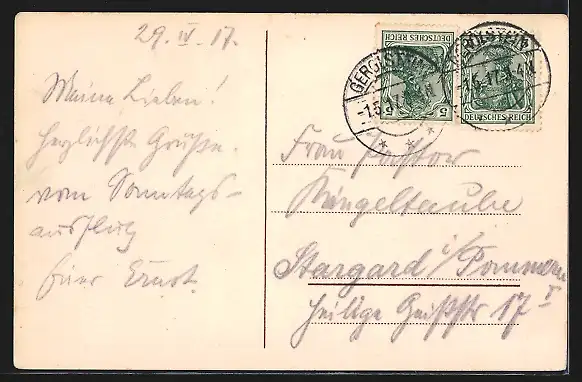 29. IV. 17.
Meine Lieben!
herzlichste Grüße
vom Sonntags-
ausflug
Euer Ernst.
DEUTSCHES REICH
5
DEUTSCHES REICH
GEROLSTEIN
-1.5.17.
GEROLSTEIN
-1.5.17.
Frau Pastor
Ringeltaube
Stargard i/Pommern
Heilige Geiststr 17 I